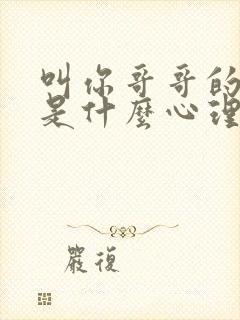 叫你哥哥的
是什麼心理
嚴復